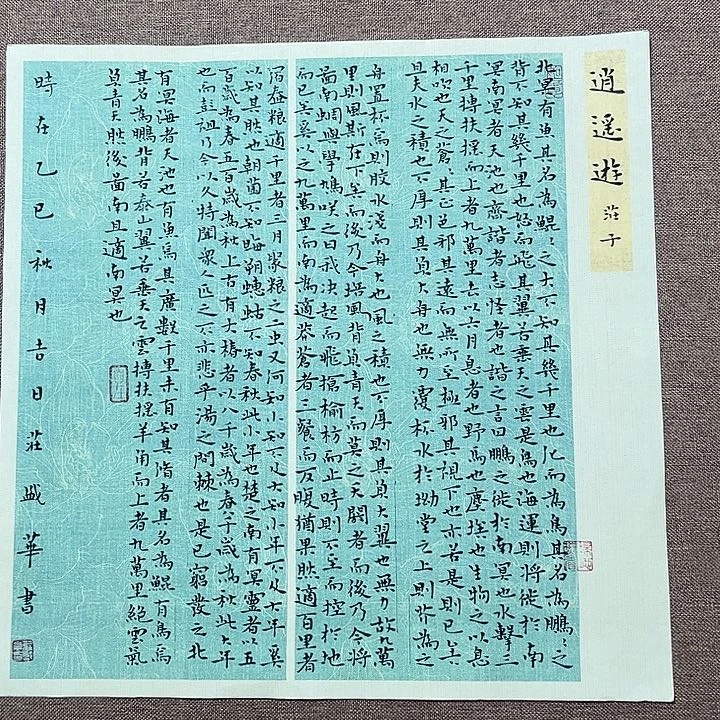 逍遥遊 莊子
北冥有魚其名為鯤鯤之大不知其幾千里也化而為鳥其名為鵬鵬之
背不知其幾千里也怒而飛其翼若垂天之雲是鳥也海運則將徙於南
冥南冥者天池也齊諧者志怪者也諧之言曰鵬之徙於南冥也水擊三
千里摶扶搖而上者九萬里去以六月息者也野馬也塵埃也生物之以息
相吹也天之蒼蒼其正色邪其遠而無所至極邪其視下也亦若是則已矣
且夫水之積也不厚則其負大舟也無力覆杯水於坳堂之上則芥為之
舟置杯焉則膠水淺而舟大也風之積也不厚則其負大翼也無力故九萬
里則風斯在下矣而後乃今培風背負青天而莫之夭閼者而後乃今將
圖南蜩與學鳩咲之曰我決起而飛搶榆枋而止時則不至而控於地
而已矣奚以之九萬里而南為適莽蒼者三餐而反腹猶果然適百里者
宿舂粮適千里者三月聚粮之二虫又何知小知不及大知小年不及大年奚
以知其然也朝菌不知晦朔蟪蛄不知春秋此小年也楚之南有冥靈者以五
百歲為春五百歲為秋上古有大椿者以八千歲為春八千歲為秋此大年
也而彭祖乃今以久特聞衆人匹之不亦悲乎湯之問棘也是已窮髮之北
有冥海者天池也有魚焉其廣數千里未有知其脩者其名為鯤有鳥焉
其名為鵬背若泰山翼若垂天之雲摶扶搖羊角而上者九萬里絕雲氣
負青天然後圖南且適南冥也
時在乙巳秋月吉日莊盛華書